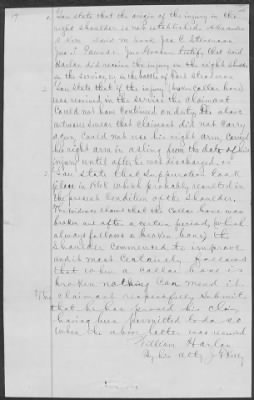 You state that the origin of the injury in the
right shoulder is not established. Alexander
Jas. F. Jno. Graham testify that said
Harlan did receive the injury in the right shoulder
in the service, in the battle of
You state that if the injury (broken collar bone)
was received in the service the claimant
could not have continued on duty, the above
witnesses swear that claimant did not carry
again, could not use his right arm, carried
his right arm in a sling from the date of his
injury until after he was discharged,
You state that suppuration took
place in 1868 which probably resulted in
the present condition of the shoulder.
The evidence shows that the collar bone was
broken and after a certain period, (which
always follows a broken bone) the
shoulder commenced to improve
and it most certainly follows
that when a collar bone is
broken nothing can mend it.
The claimant respectfully submits
that he has proved his claim
having been permitted to do so
when the above letter was received
William Harlan
By his atty